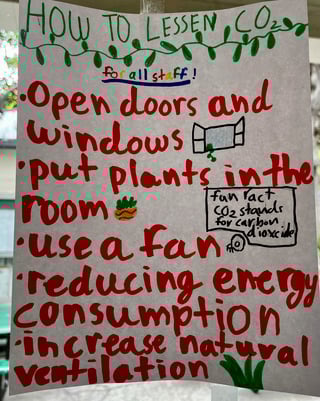 HOW TO LESSEN CO2
for all staff!
•Open doors and
windows
•put plants in the
room
fun fact
CO2 stands
for carbon
dioxcide
•use a fan
•reducing energy
consumption
•increase natural
ventilation